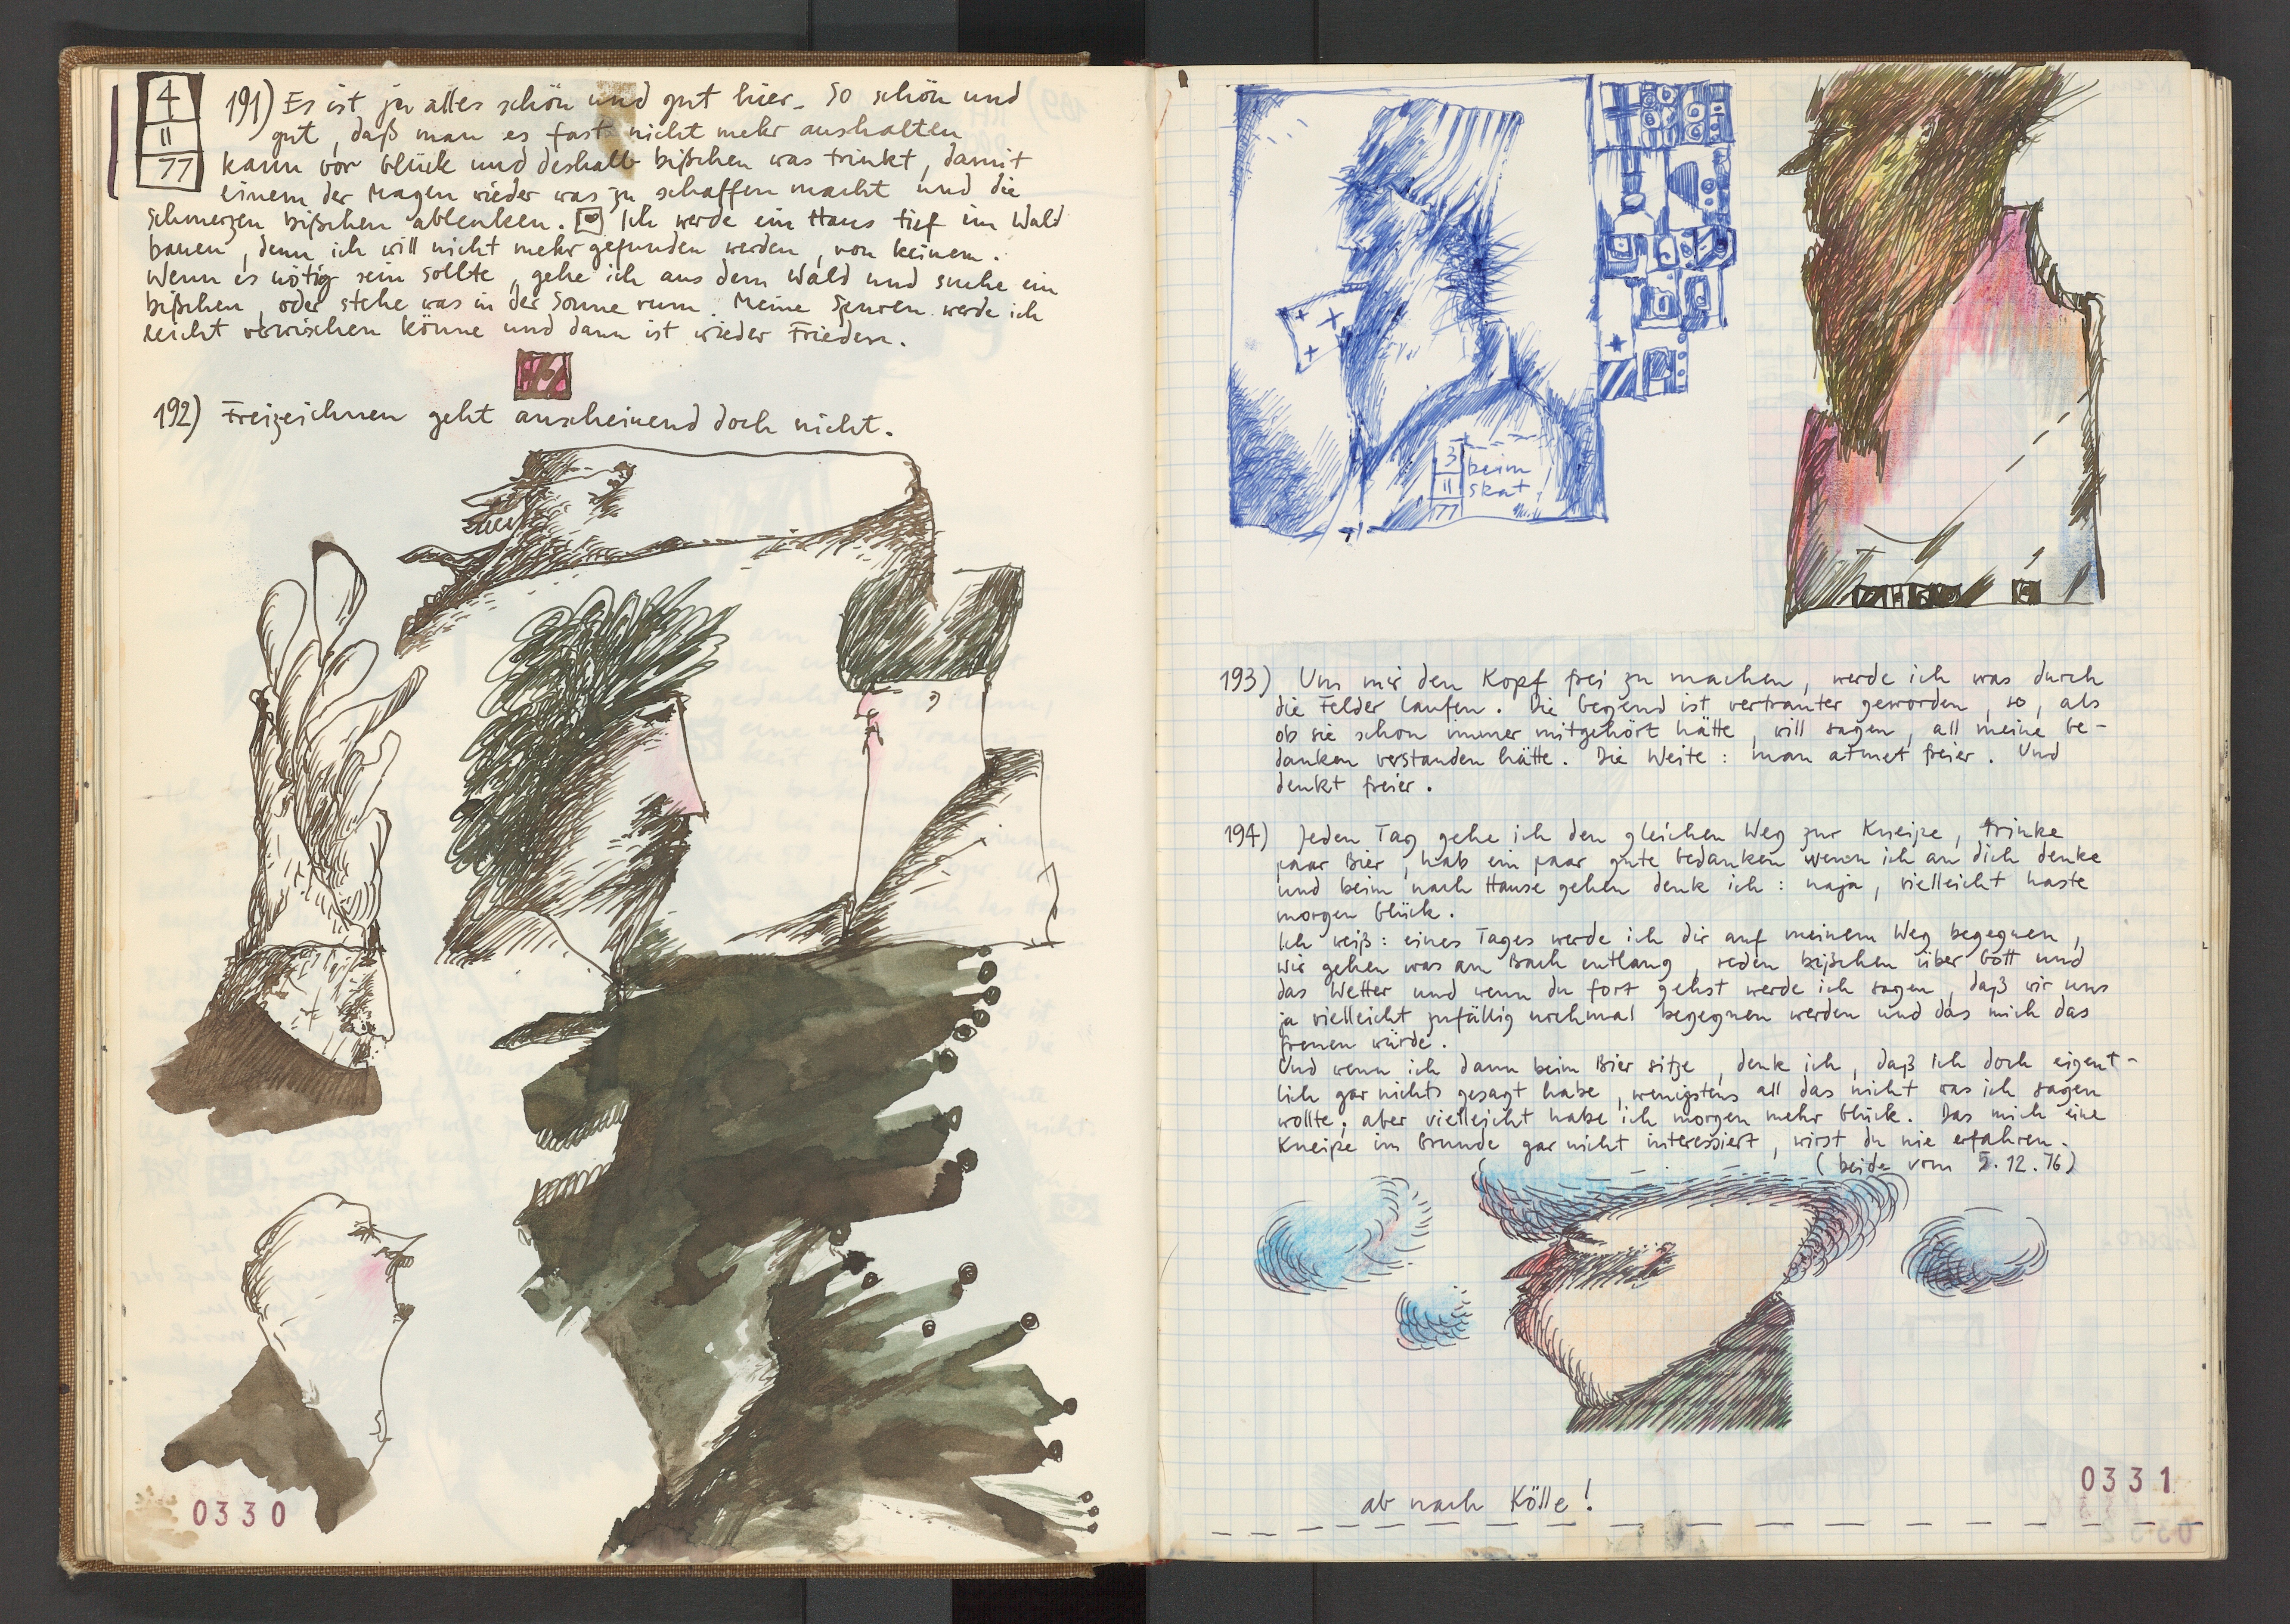 4
11
77
191) Es ist ja alles schön und gut hier. So schön und
gut, daß man es fast nicht mehr aushalten
kann vor Glück und deshalb bißchen was trinkt, damit
einem der Magen wieder was zu schaffen macht und die
Schmerzen bißchen ablenken. Ich werde ein Haus tief im Wald
bauen, denn ich will nicht mehr gefunden werden, von keinem.
Wenn es nötig sein sollte, gehe ich aus dem Wald und suche ein
bißchen, oder stehe was in der Sonne rum. Meine Spuren werde ich
leicht verwischen könne und dann ist wieder Frieden.
192) Freizeichnen geht anscheinend doch nicht.
0330
3
11
77
beim
Skat
193) Um mir den Kopf frei zu machen, werde ich was durch
die Felder laufen. Die Gegend ist vertrauter geworden, so, als
ob sie schon immer mitgehört hätte, will sagen, all meine Ge-
danken verstanden hätte. Die Weite: man atmet freier. Und
denkt freier.
194) Jeden Tag gehe ich den gleichen Weg zur Kneipe, trinke
paar Bier, hab ein paar gute Gedanken wenn ich an dich denke
und beim nach Hause gehen denk ich: naja, vielleicht haste
morgen Glück.
Ich weiß: eines Tages werde ich dir auf meinem Weg begegnen,
wir gehen was am Bach entlang, reden bißchen über Gott und
das Wetter und wenn du fort gehst werde ich sagen, daß wir uns
ja vielleicht zufällig nochmal begegnen werden und das mich das
freuen würde.
Und wenn ich dann beim Bier sitze, denk ich, daß ich doch eigent-
lich gar nichts gesagt habe, wenigstens all das nicht was ich sagen
wollte, aber vielleicht habe ich morgen mehr Glück. Das mich eine
Kneipe im Grunde gar nicht interessiert, wirst du nie erfahren.
(beide vom 5.12.76)
ab nach Kölle!
0331